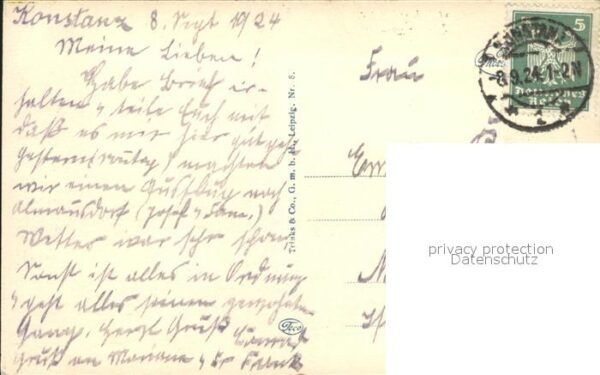 Konstanz 8. Sept 1924
Meine Lieben!
Habe Brief er-
halten & teile Euch mit
daß es mir hier gut geht
Gestern (Sonntag) machten
wir einen Ausflug nach
Allmansdorf (Josef & Fam.)
Wetter war sehr schön
Sonst ist alles in Ordnung
& geht alles seinen gewohnten
Gang. Herzl Gruß
Gruß an
Trinks & Co., G. m. b. H., Leipzig. Nr. 8.
Trico
Frau
KONSTANZ
-8.9.24.1-2N
5
Deutsches
Reich
privacy protection
Datenschutz